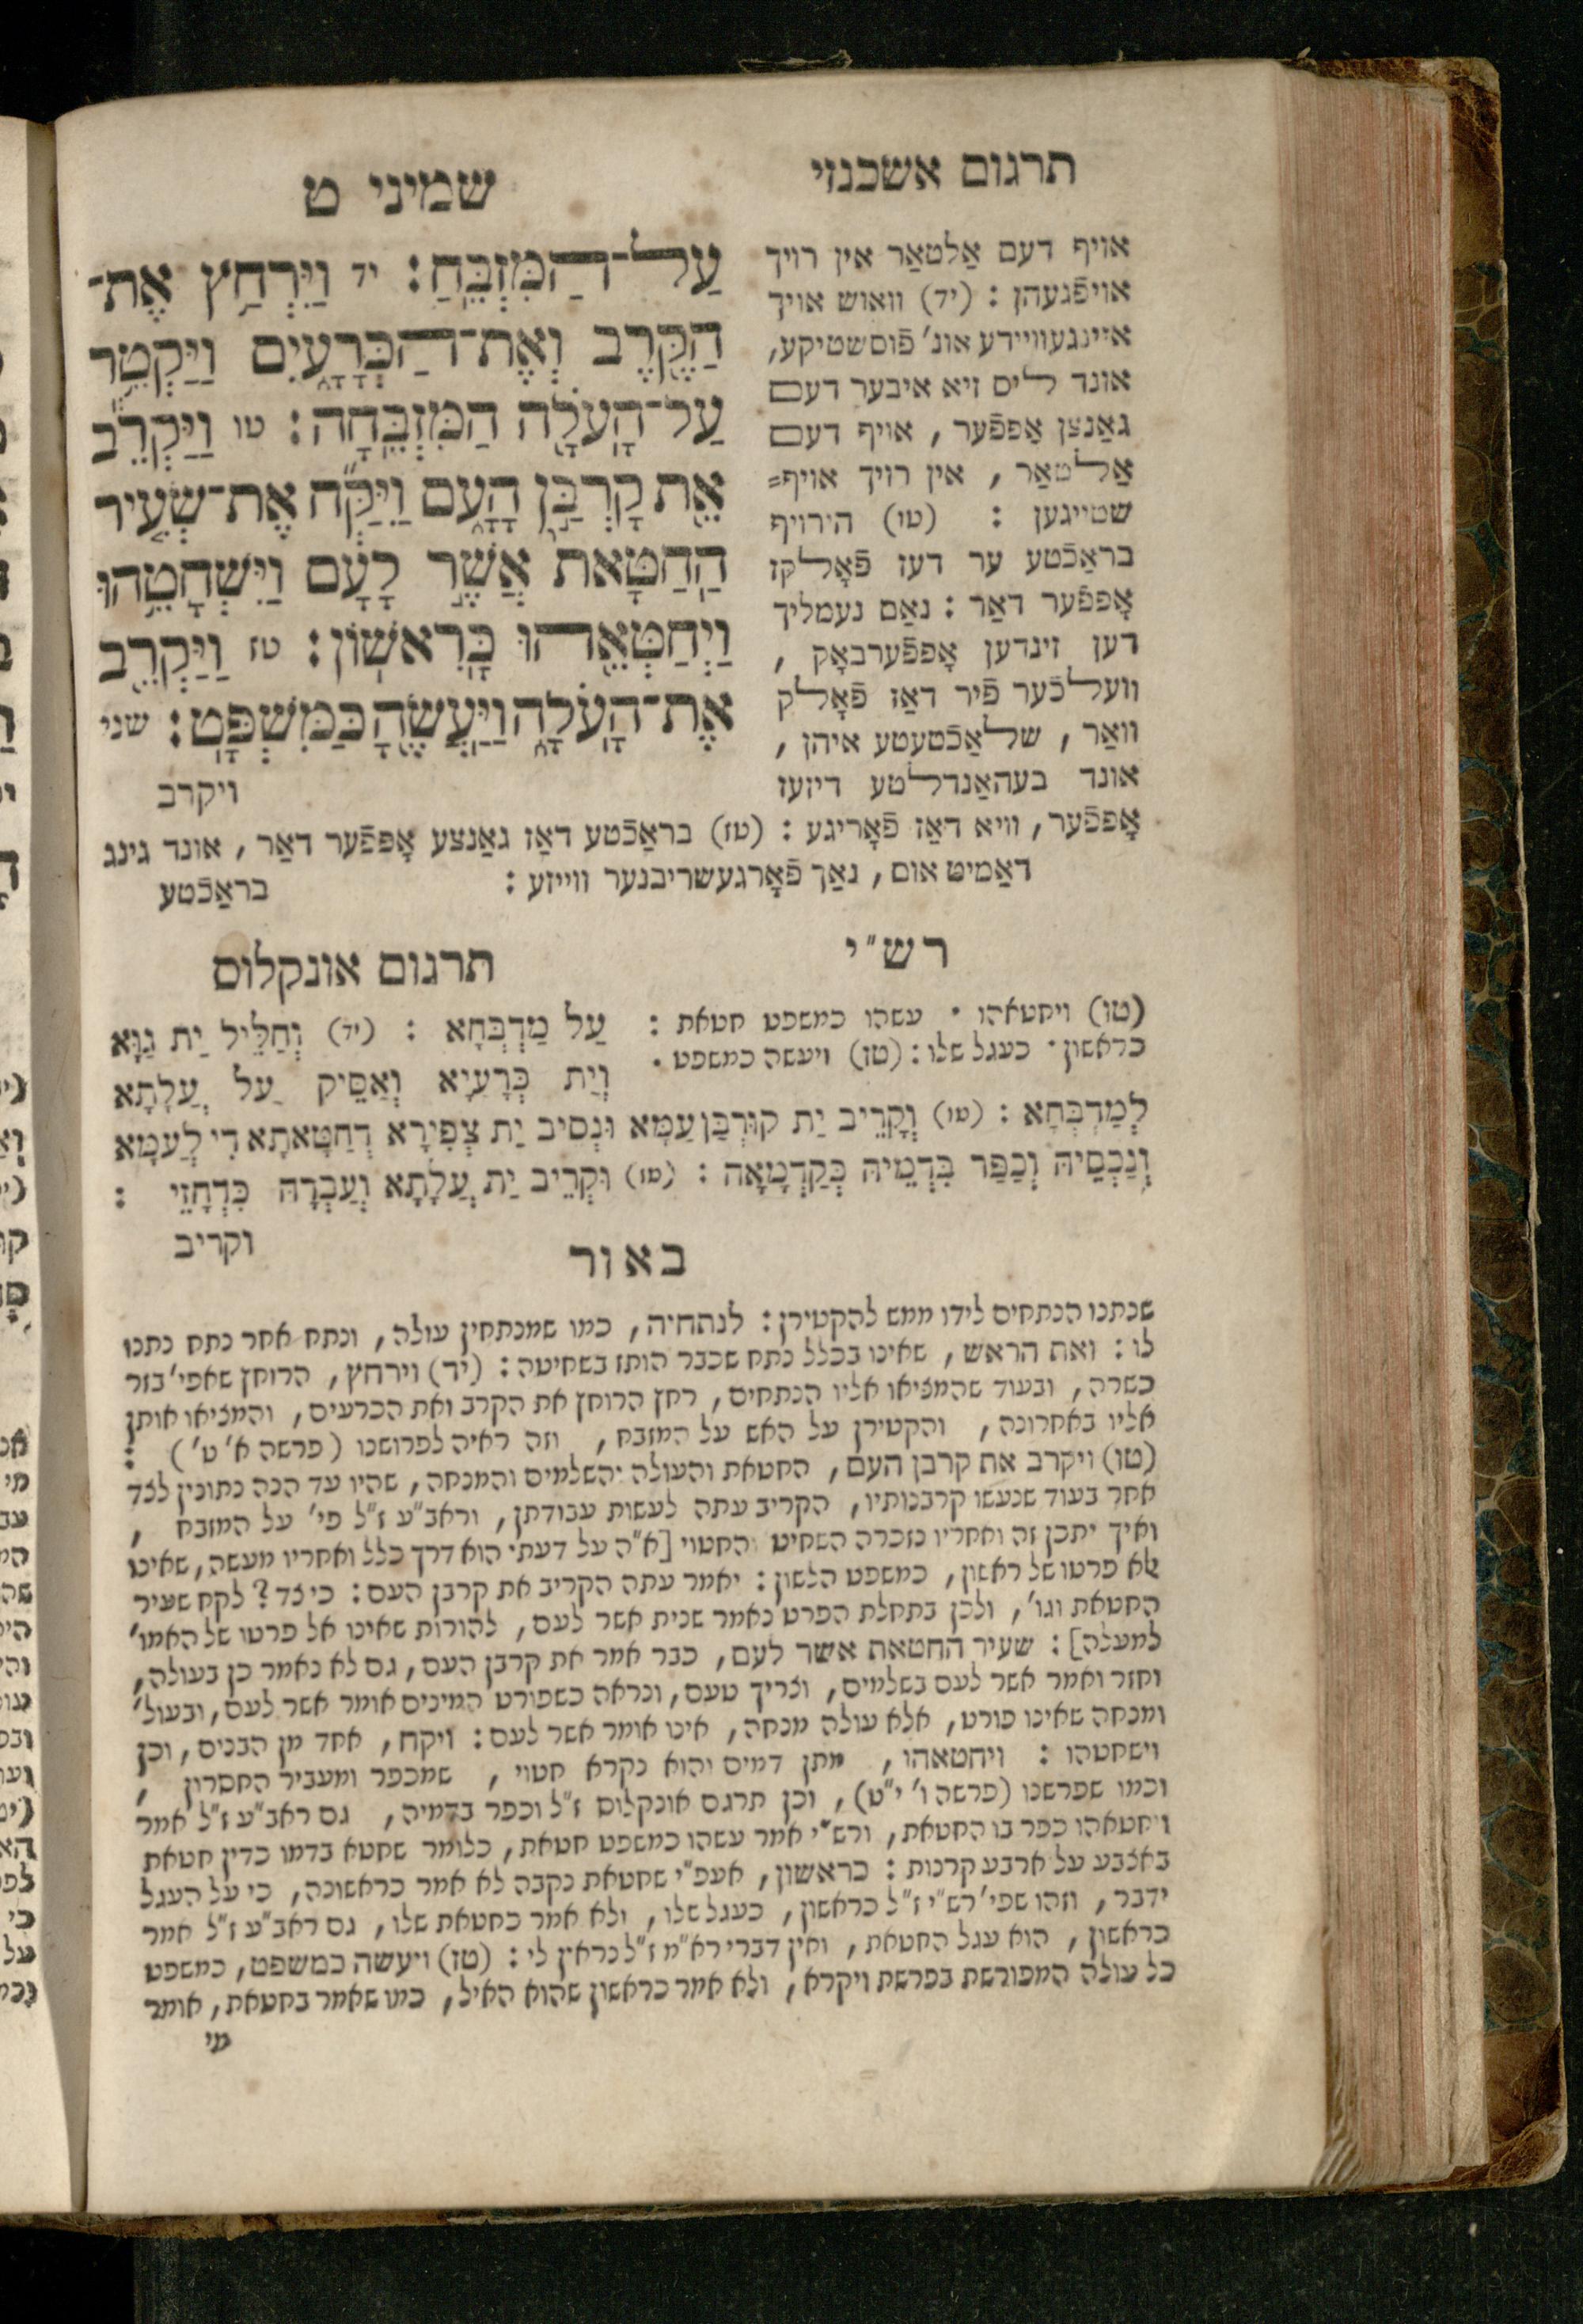 תרגום אשכנזי
שמיני ט
עַל־הַמִּזְבֵּחַ: יד וַיִּרְחַץ אֶת־
הַקֶּרֶב וְאֶת־הַכְּרָעָיִם וַיַּקְטֵר
עַל־הָעֹלָה הַמִּזְבֵּחָה: טו וַיַּקְרֵב
אֵת קָרְבַּן הָעָם וַיִּקַּח אֶת־שְׂעִיר
הַחַטָּאת אֲשֶׁר לָעָם וַיִּשְׁחָטֵהוּ
וַיְחַטְּאֵהוּ כָּרִאשׁוֹן: טז וַיַּקְרֵב
אֶת־הָעֹלָה וַיַּעֲשֶׂהָ כַּמִּשְׁפָּט: שני
ויקרב
אויף דעם אַלטאַר אין רויך
אויפֿגעהן: (יד) וואוש אויך
איינגעוויידע אונ' פֿוסשטיקע,
אונד ליס זיא איבער דעם
גאַנצן אָפּפֿער, אויף דעם
אַלטאַר, אין רויך אויף=
שטייגען: (טו) הירויף
בראַכֿטע ער דעז פֿאָלקז
אָפּפֿער דאַר: נאַם נעמליך
דען זינדען אָפּפֿערבאָק,
וועלכֿער פֿיר דאַז פֿאָלק
וואַר, שלאַכֿטעטע איהן,
אונד בעהאַנדלטע דיזעז
אָפּפֿער, וויא דאַז פֿאָריגע: (טז) בראַכֿטע דאַז גאַנצע אָפּפֿער דאַר, אונד גינג
דאַמיט אום, נאַך פֿאָרגעשריבנער ווייזע:
בראַכֿטע
רש"י
(טו) ויחטאהו. עשהו כמשפט חטאת:
כראשון. כעגל שלו: (טז) ויעשה כמשפט.
תרגום אונקלוס
עַל מַדְבְּחָא: (יד) וְחַלֵּיל יַת גַּוָּא
וְיַת כְּרָעַיָּא וְאַסֵּיק עַל עֲלָתָא
לְמַדְבְּחָא: (טו) וְקָרֵיב יַת קוּרְבַּן עַמָּא וּנְסִיב יַת צְפִירָא דְחַטָּאתָא דִי לְעַמָּא
וְנַכְסֵיהּ וְכַפַּר בִּדְמֵיהּ כְּקַדְמָאָה: (טז) וּקְרֵיב יַת עֲלָתָא וְעַבְדָהּ כִּדְחָזֵי:
וקריב
באור
שנתנו הנתחים לידו ממש להקטירן: לנתחיה, כמו שמנתחין עולה, ונתח אחר נתח נתנו
לו: ואת הראש, שאינו בכלל נתח שכבר הותז בשחיטה: (יד) וירחץ, הרוחץ שאפי' בזר
כשרה, ובעוד שהמציאו אליו הנתחים, רחץ הרוחץ את הקרב ואת הכרעים, והמציאו אותן
אליו באחרונה, והקטירן על האש על המזבח, וזה ראיה לפרושנו (פרשה א' ט'):
(טו) ויקרב את קרבן העם, החטאת והעולה והשלמים והמנחה, שהיו עד הנה נתונין לצד
אחר בעוד שנעשו קרבנותיו, הקריב עתה לעשות עבודתן, וראב"ע ז"ל פי' על המזבח,
ואיך יתכן זה ואחריו נזכרה השחיט' והחטוי [א"ה על דעתי הוא דרך כלל ואחריו מעשה, שאינו
אלא פרטו של ראשון, כמשפט הלשון: יאמר עתה הקריב את קרבן העם: כיצד? לקח שעיר
החטאת וגו', ולכן בתחלת הפרט נאמר שנית אשר לעם, להורות שאינו אל פרטו של האמו'
למעלה]: שעיר החטאת אשר לעם, כבר אמר את קרבן העם, גם לא נאמר כן בעולה,
וחזר ואמר אשר לעם בשלמים, וצריך טעם, ונראה כשפורט המינים אומר אשר לעם, ובעול'
ומנחה שאינו פורט, אלא עולה מנחה, אינו אומר אשר לעם: ויקח, אחד מן הבנים, וכן
וישחטהו: ויחטאהו, מתן דמים והוא נקרא חטוי, שמכפר ומעביר החסרון,
וכמו שפרשנו (פרשה ו' י"ט), וכן תרגם אונקלוס ז"ל וכפר בדמיה, גם ראב"ע ז"ל אמר
ויחטאהו כפר בו החטאת, ורש"י אמר עשהו כמשפט חטאת, כלומר שחטא בדמו כדין חטאת
באצבע על ארבע קרנות: כראשון, אעפ"י שחטאת נקבה לא אמר כראשונה, כי על העגל
ידבר, וזהו שפי' רש"י ז"ל כראשון, כעגל שלו, ולא אמר כחטאת שלו, גם ראב"ע ז"ל אמר
כראשון, הוא עגל החטאת, ואין דברי רא"ם ז"ל נראין לי: (טז) ויעשה כמשפט, כמשפט
כל עולה המפורשת בפרשת ויקרא, ולא אמר כראשון שהוא האיל, כמו שאמר בחטאת, אומר
מי